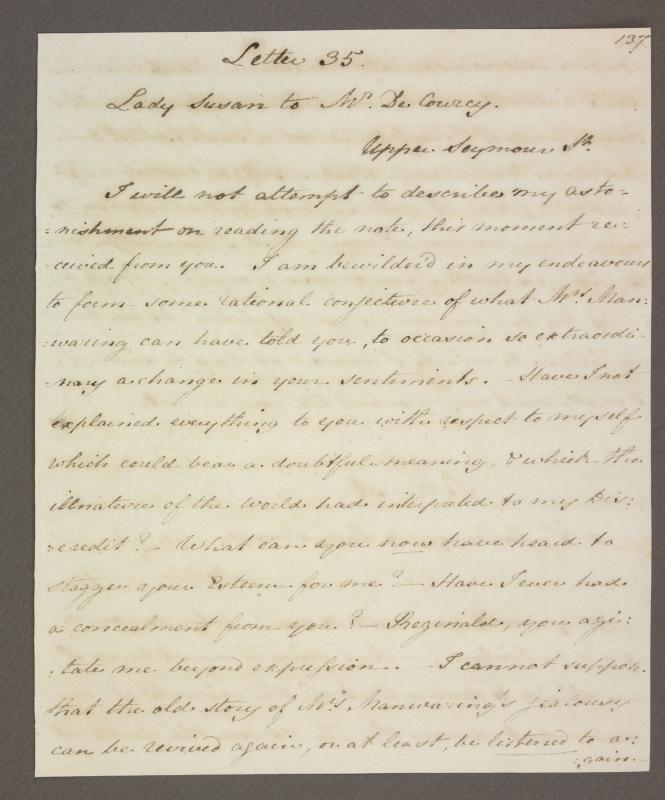 137
Letter 35.
Lady Susan to Mr. De Courcy.
Upper Seymour St.
I will not attempt to describe my asto=
=nishment on reading the note, this moment re=
=ceived from you. I am bewilder'd in my endeavours
to form some rational conjecture of what Mrs. Man=
=waring can have told you, to occasion so extraordi=
=nary a change in your sentiments. – Have I not
explained everything to you with respect to myself
which could bear a doubtful meaning, & which the
illnature of the World had interpreted to my Dis=
=credit? – What can you now have heard to
stagger your Esteem for me? – Have I ever had
a concealment from you? – Reginald, you agi=
=tate me beyond expression. – I cannot suppose
that the old story of Mrs. Manwaring's jealousy
can be revived again, or at least, be listened to a=
=gain. –